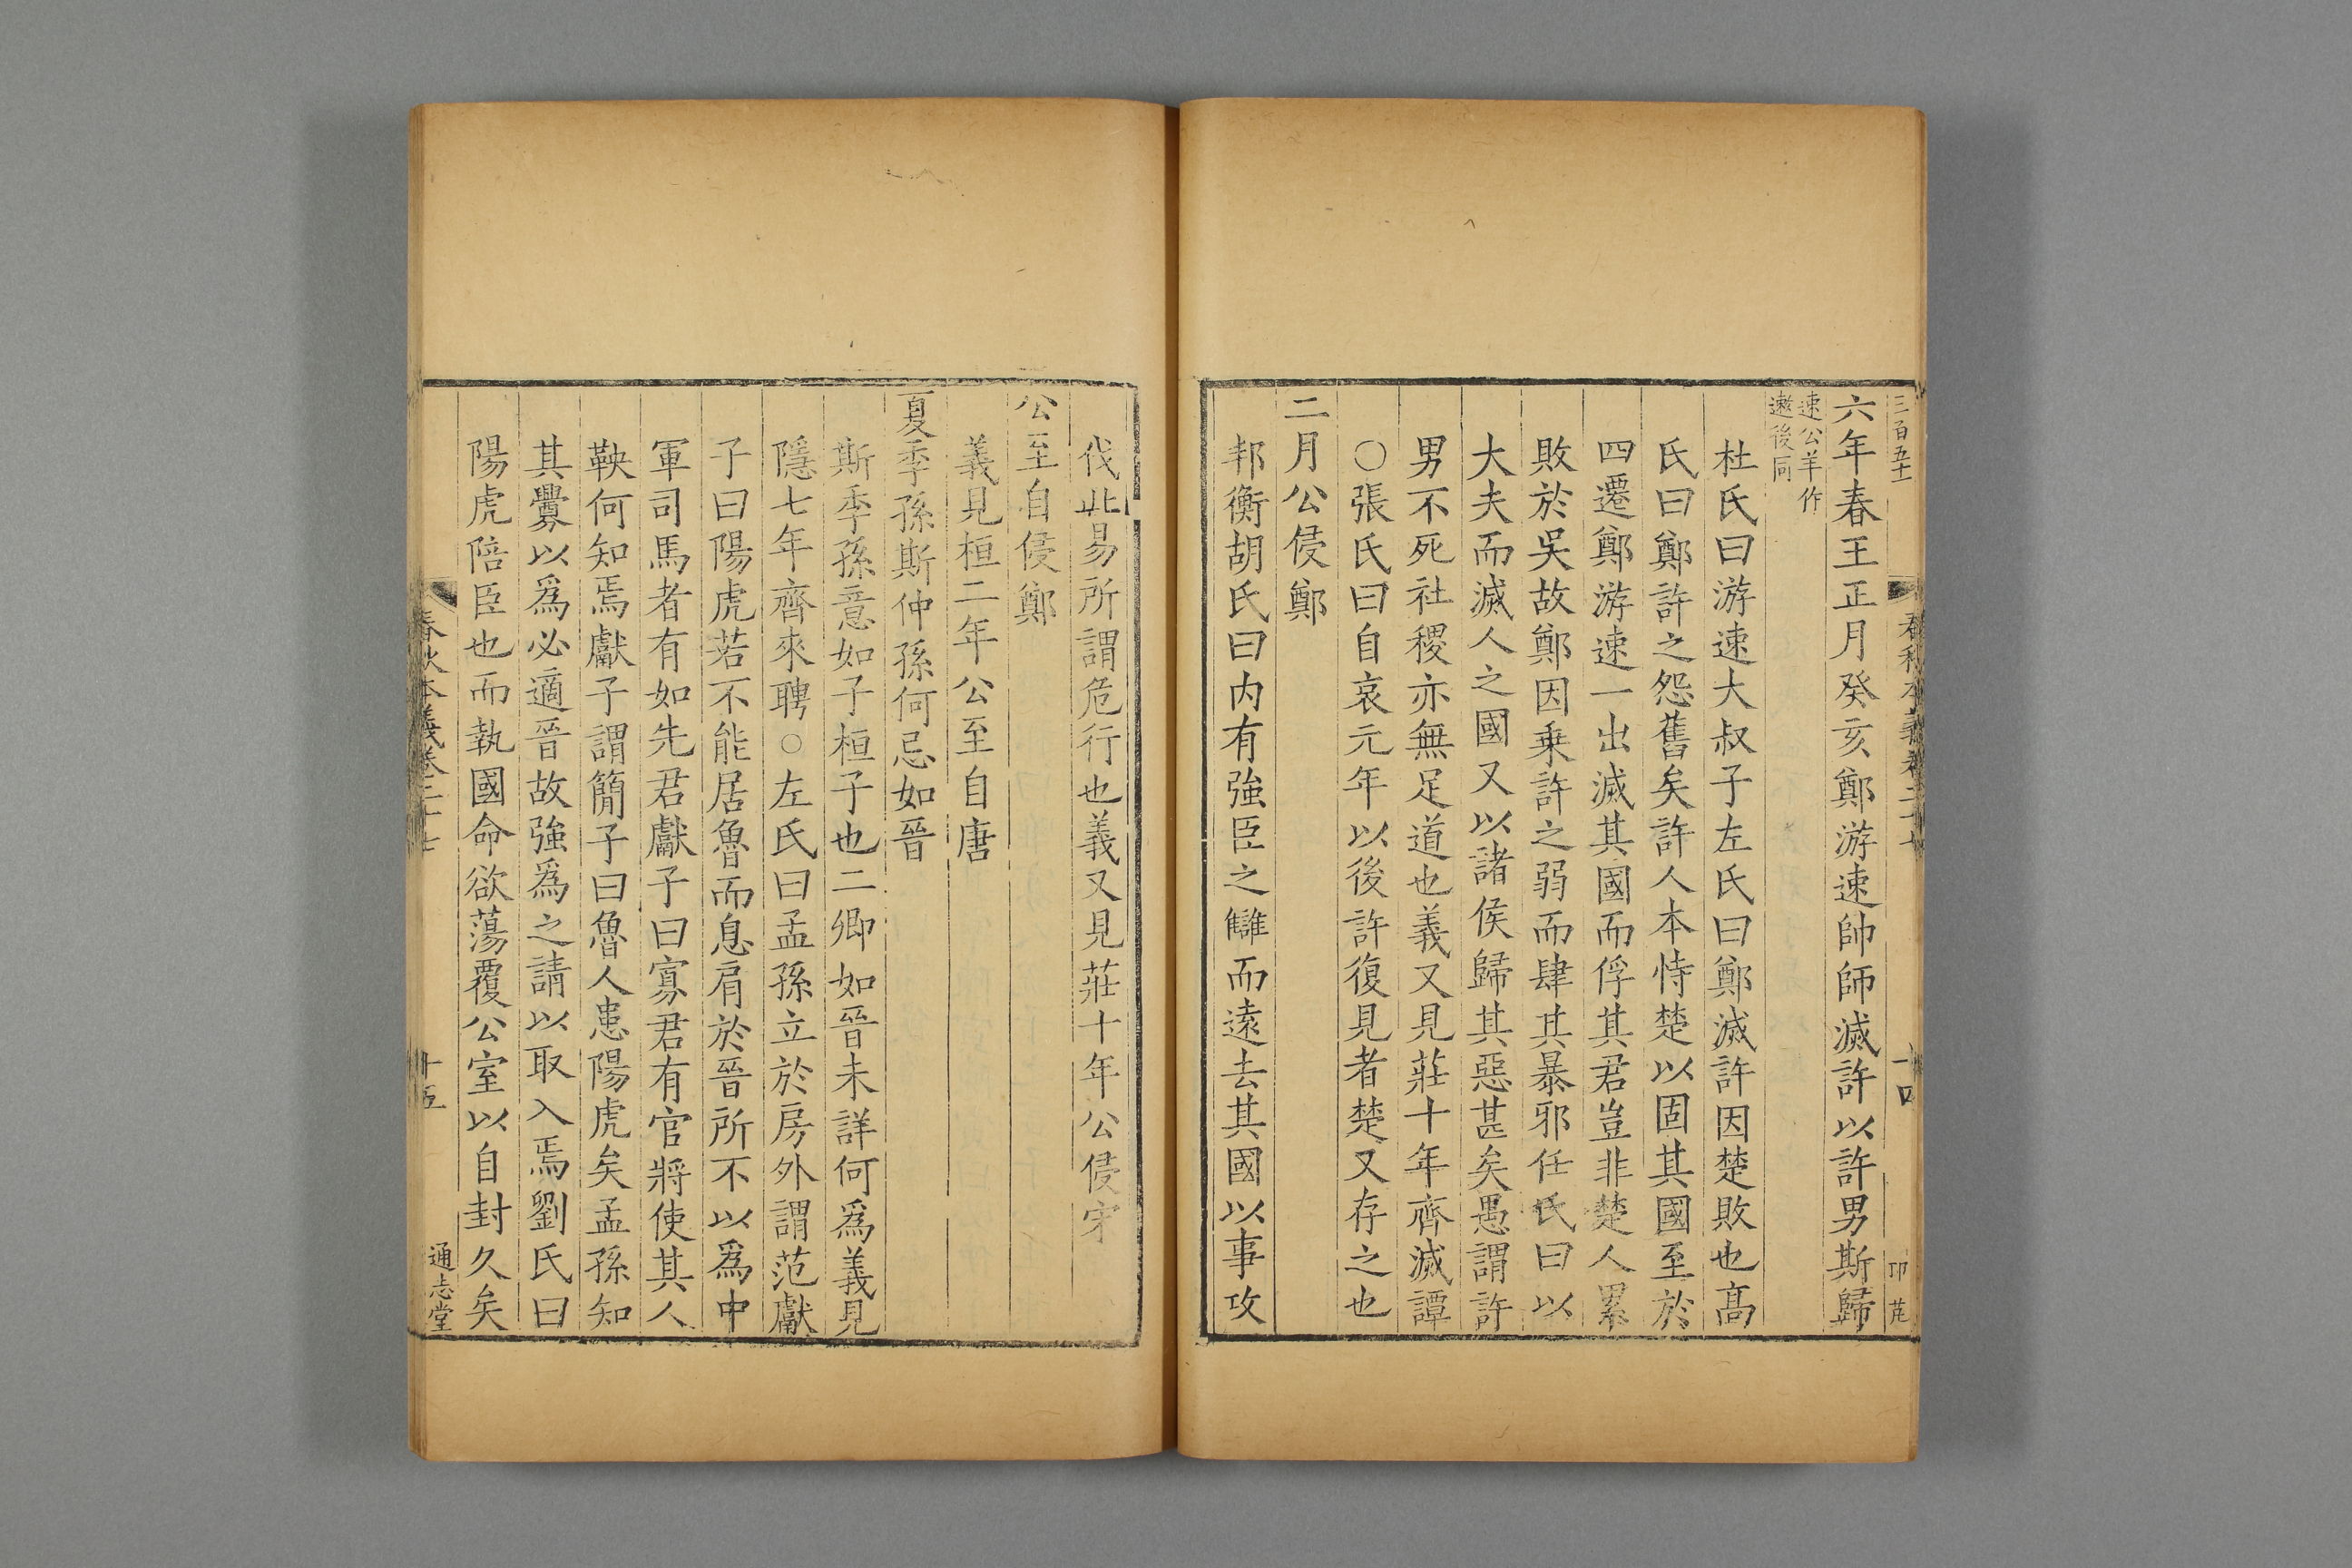 三百五十
春秋本義卷二十七
十四
六年春王正月癸亥鄭游速帥師滅許以許男斯歸
速公羊作
遬後同
杜氏曰游速大叔子左氏曰鄭滅許因楚敗也髙
氏曰鄭許之怨舊矣許人本恃楚以固其國至於
四遷鄭游速一出滅其國而俘其君豈非楚人累
敗於吳故鄭因乗許之弱而肆其暴邪任氏曰以
大夫而滅人之國又以諸侯歸其惡甚矣愚謂許
男不死社稷亦無足道也義又見莊十年齊滅譚
○張氏曰自哀元年以後許復見者楚又存之也
二月公侵鄭
邦衡胡氏曰内有強臣之讎而遠去其國以事攻
伐此易所謂危行也義又見莊十年公侵宋
公至自侵鄭
義見桓二年公至自唐
夏季孫斯仲孫何忌如晉
斯季孫意如子桓子也二卿如晉未詳何爲義見
隱七年齊來聘○左氏曰孟孫立於房外謂范獻
子曰陽虎若不能居魯而息肩於晉所不以爲中
軍司馬者有如先君獻子曰寡君有官將使其人
鞅何知焉獻子謂簡子曰魯人患陽虎矣孟孫知
其釁以爲必適晉故強爲之請以取入焉劉氏曰
陽虎陪臣也而執國命欲蕩覆公室以自封久矣
春秋本義卷二十七
十五
通志堂